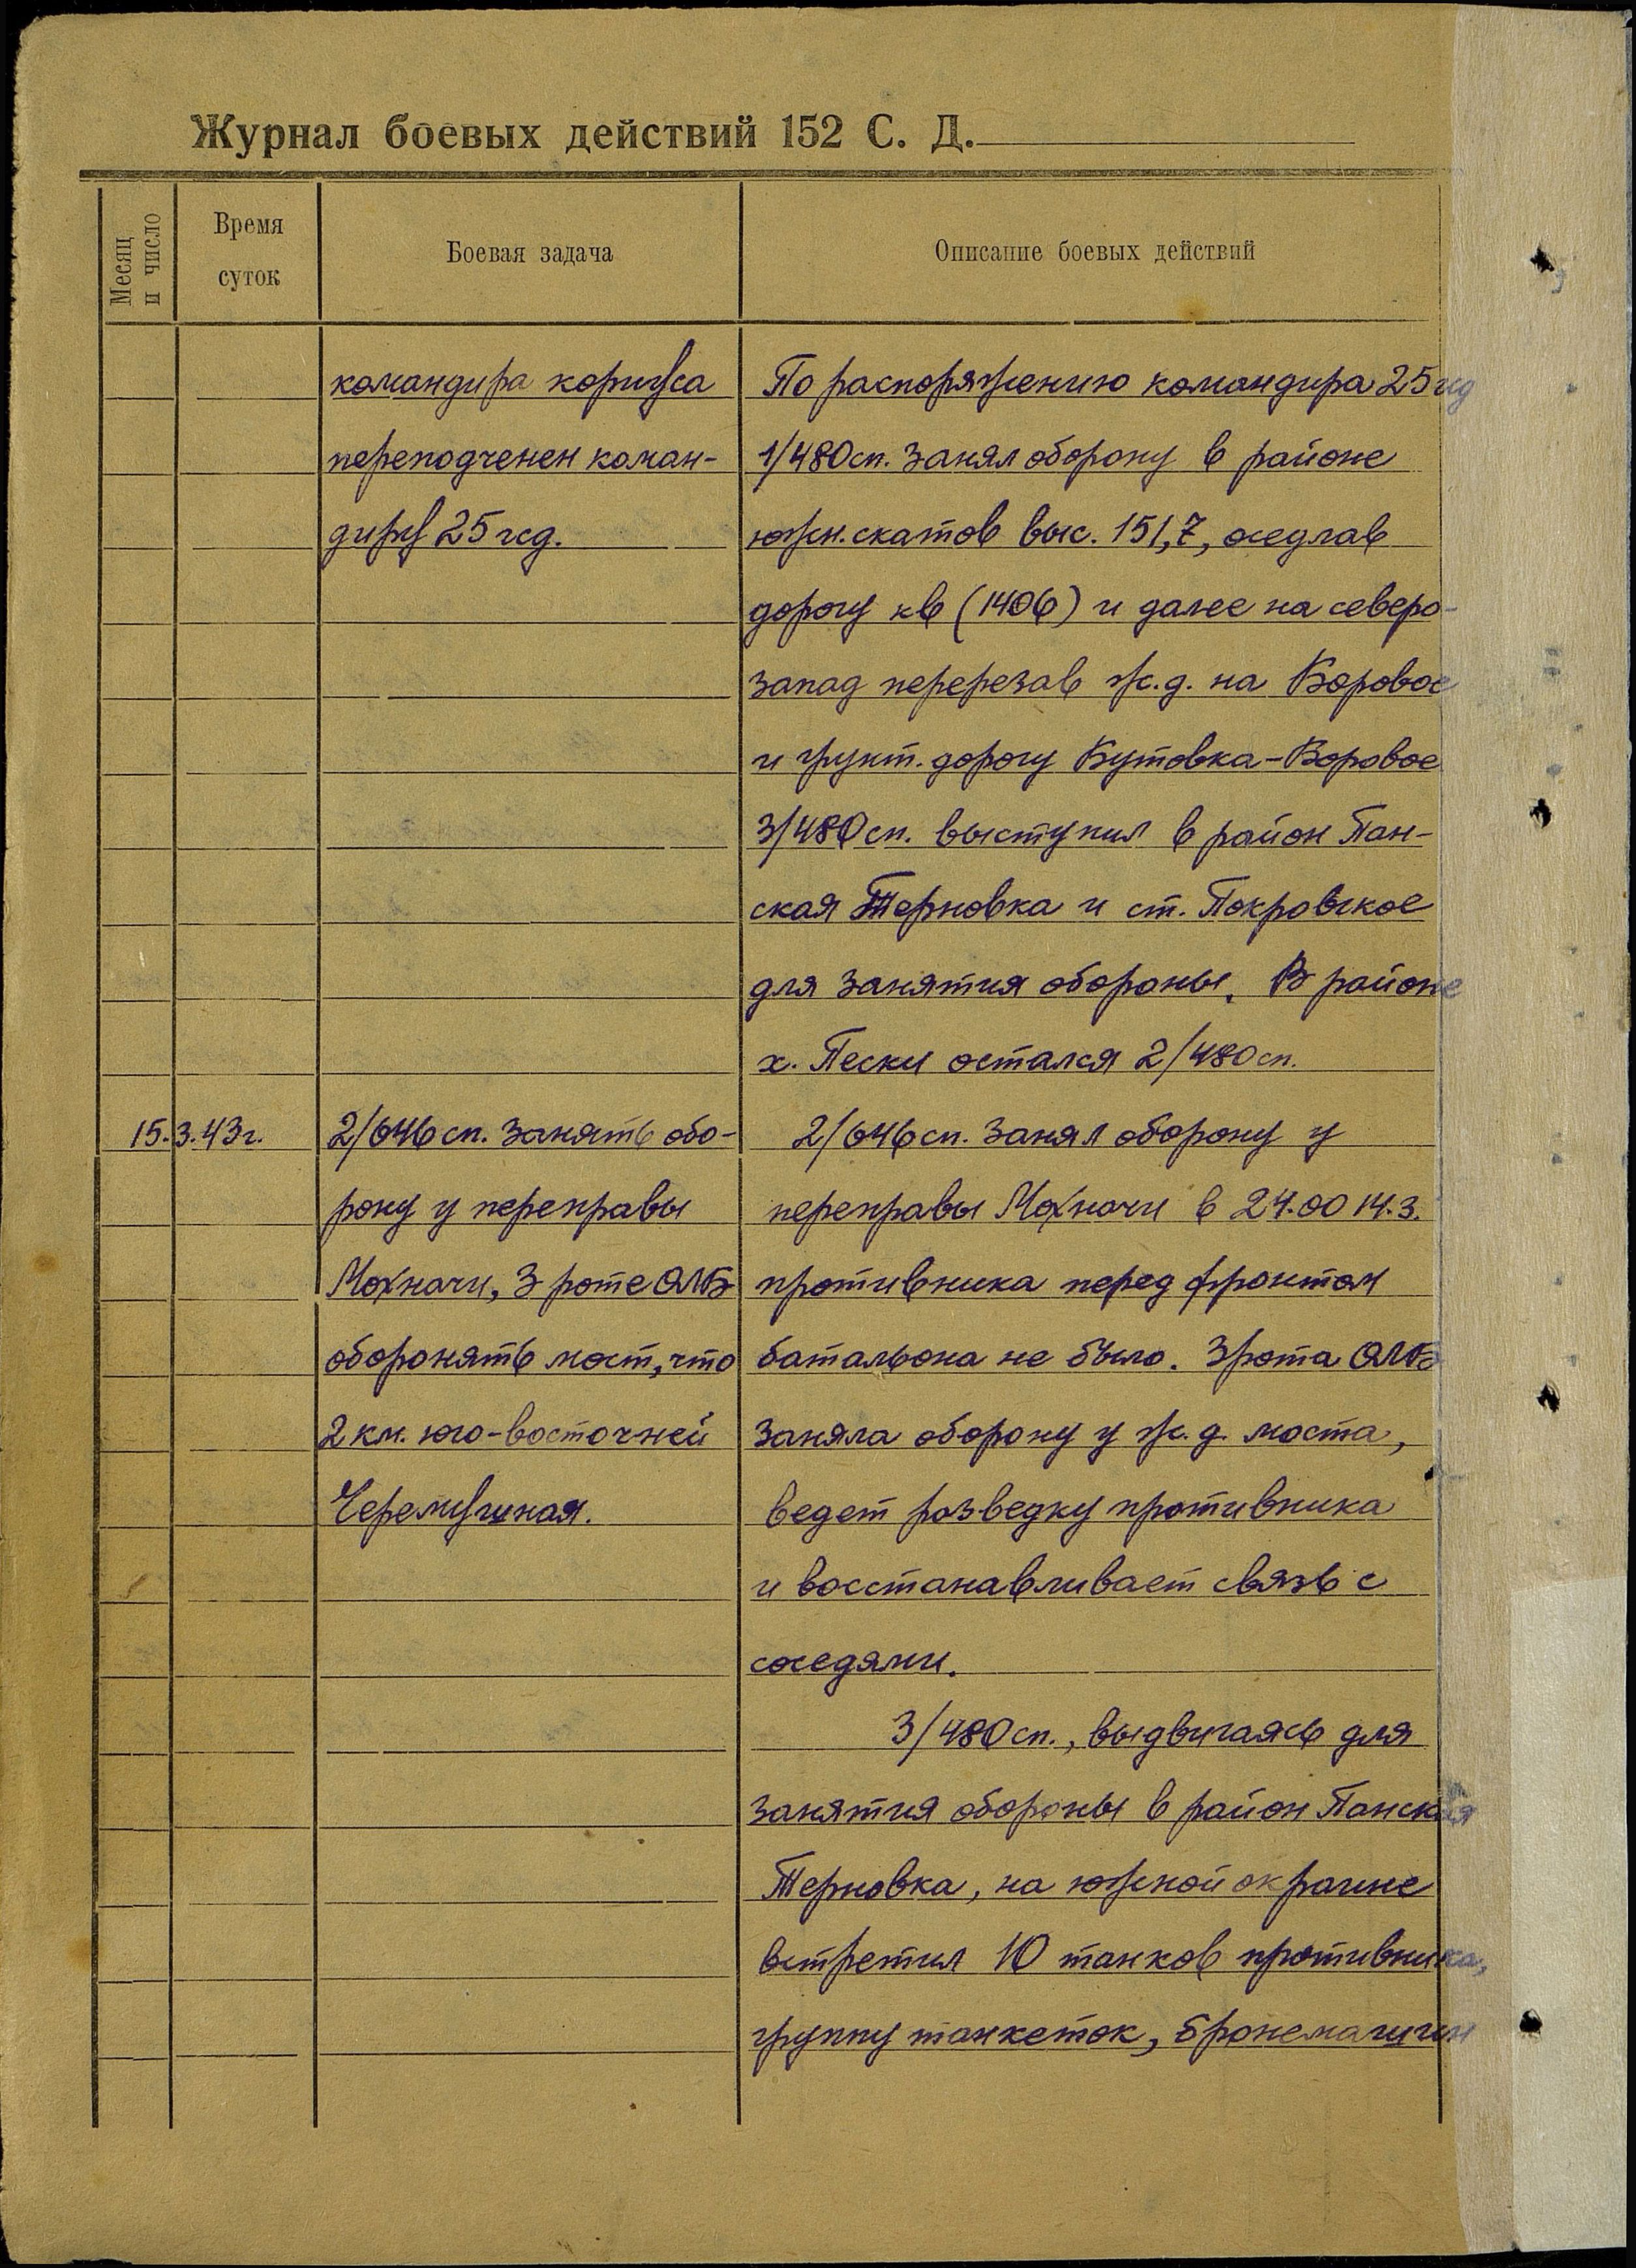 Журнал боевых действий 152 С. Д.
Месяц и число
Время суток
Боевая задача
Описание боевых действий
командира корпуса
переподченен коман-
диру 25 гсд.
По распоряжению командира 25 гсд
1/480 сп. занял оборону в районе
южн. скатов выс. 151,7, оседлав
дорогу кв (1406) и далее на северо-
запад перерезав ж.д. на Боровое
и грунт. дорогу Бутовка-Боровое
3/480 сп. выступил в район Пан-
ская Терновка и ст. Покровское
для занятия обороны. В районе
х. Пески остался 2/480 сп.
15.3.43г.
2/646 сп. занять обо-
рону у переправы
Мохначи, 3 роте ОЛБ
оборонять мост, что
2 км. юго-восточней
Черемушная.
2/646 сп. занял оборону у
переправы Мохначи в 24.00 14.3.
противника перед фронтом
батальона не было. 3 рота ОЛБ
заняла оборону у ж.д. моста,
ведет розведку противника
и восстанавливает связь с
соседями.
3/480 сп., выдвигаясь для
занятия обороны в район Панская
Терновка, на южной окраине
встретил 10 танков противника,
группу танкеток, бронемашин